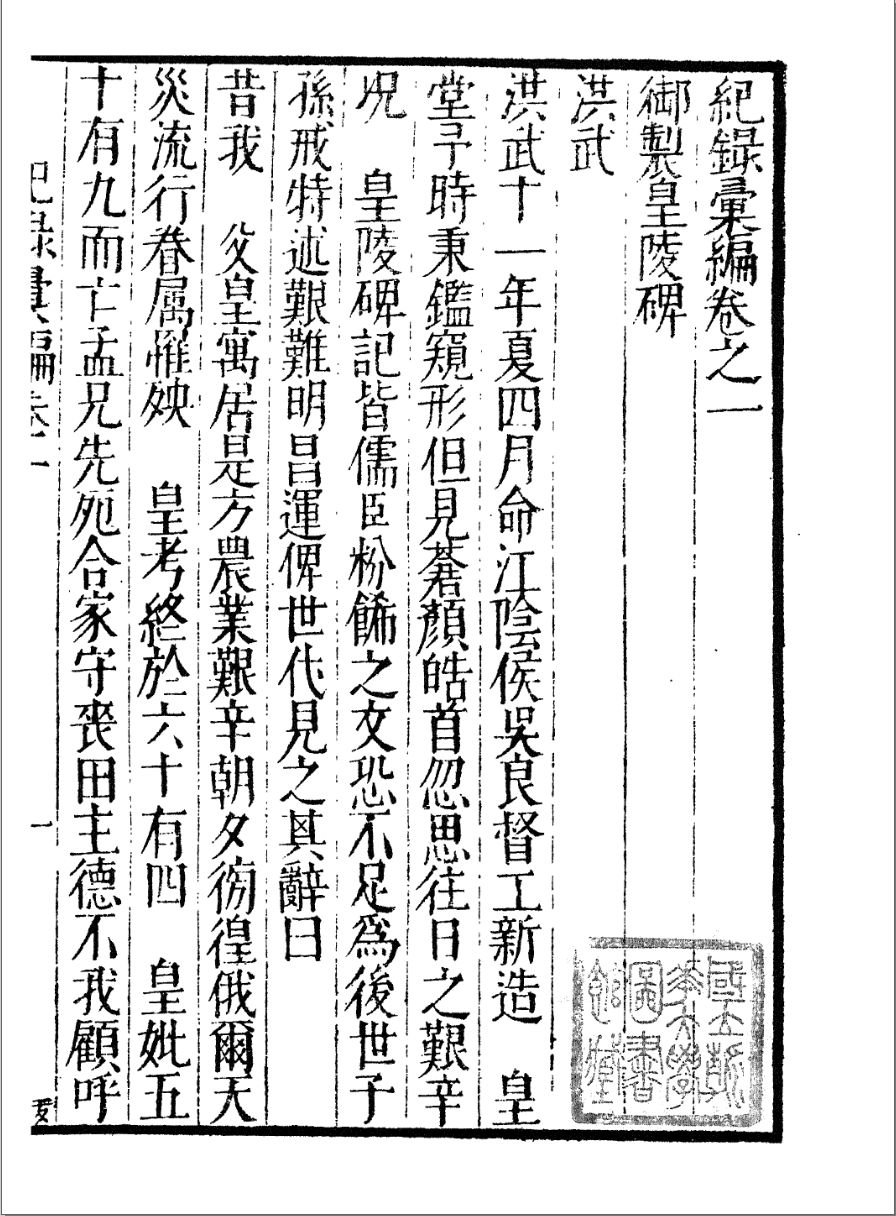 紀錄彙編卷之一
御製皇陵碑
洪武
洪武十一年夏四月命江陰侯吳良督工新造　皇
堂予時秉鑑窺形但見蒼顏皓首忽思往日之艱辛
況　皇陵碑記皆儒臣粉餙之文恐不足爲後世子
孫戒特述艱難明昌運俾世代見之其辭曰
昔我　父皇寓居是方農業艱辛朝夕徬徨俄爾天
災流行眷属罹殃　皇考終於六十有四　皇妣五
十有九而亡孟兄先死合家守喪田主德不我顧呼
紀錄彙編卷一
一